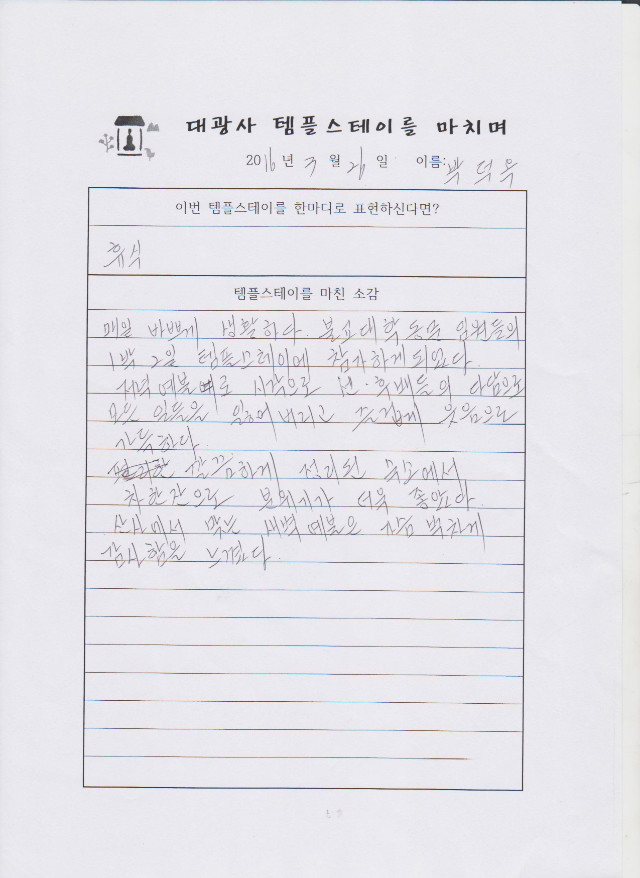 대광사 템플스테이를 마치며
2016년 3월 26일 이름: 박덕옥
이번 템플스테이를 한마디로 표현하신다면?
휴식
템플스테이를 마친 소감
매일 바쁘게 생활하다. 불교대학 동문 임원들의
1박 2일 템플스테이에 참가하게되었다.
저녁예불 시작으로 선·후배들의 다담으로
모든 일들을 잃어버리고 즐겁게 웃음으로
가득하다.
깔끔하게 정리된 숙소에서
차한잔으로 분위기가 더욱 좋았다.
산사에서 맞는 새벽예불은 가슴 벅차게
감사함을 느꼈다.